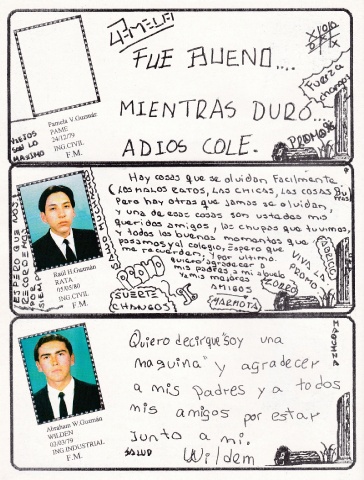 PAMELA
FUE BUENO....
MIENTRAS DURO...
ADIOS COLE.
FUERZA
changos
PROMO 96
VIEJOS
SON LO
MAXIMO
Pamela V.Guzmán
PAME
24/12/79
ING.CIVIL
F.M.
Hay cosas que se olvidan facilmente
(LOS MALOS RATOS, LAS CHICAS, LAS COSAS
Pero hay otras que jamas se olvidan,
y una de esas cosas son ustedes mis
queridos amigos, los chupos que tuvimos,
y todos los buenos momentos que
pasamos y el colegio, Espero que
me recuerden, y por ultimo
quiero agradecer a
mis padres a mi abuelo
y a mis mejores
AMIGOS
VIVA LA
PROMO
ZORRO
MARMOTA
SUERTE
CHANGOS
95
ESPERO QUE NOS
RECORDEMOS
SIEMPRE
Raúl H.Guzmán
RATA
05/05/80
ING.CIVIL
F.M.
Quiero decir que soy una
maquina" y agradecer
a mis padres y a todos
mis amigos por estar
Junto a mi.
SALUD
Wildem
MAQUINA
Abraham W.Guzmán
WILDEN
02/03/79
ING.INDUSTRIAL
F.M.